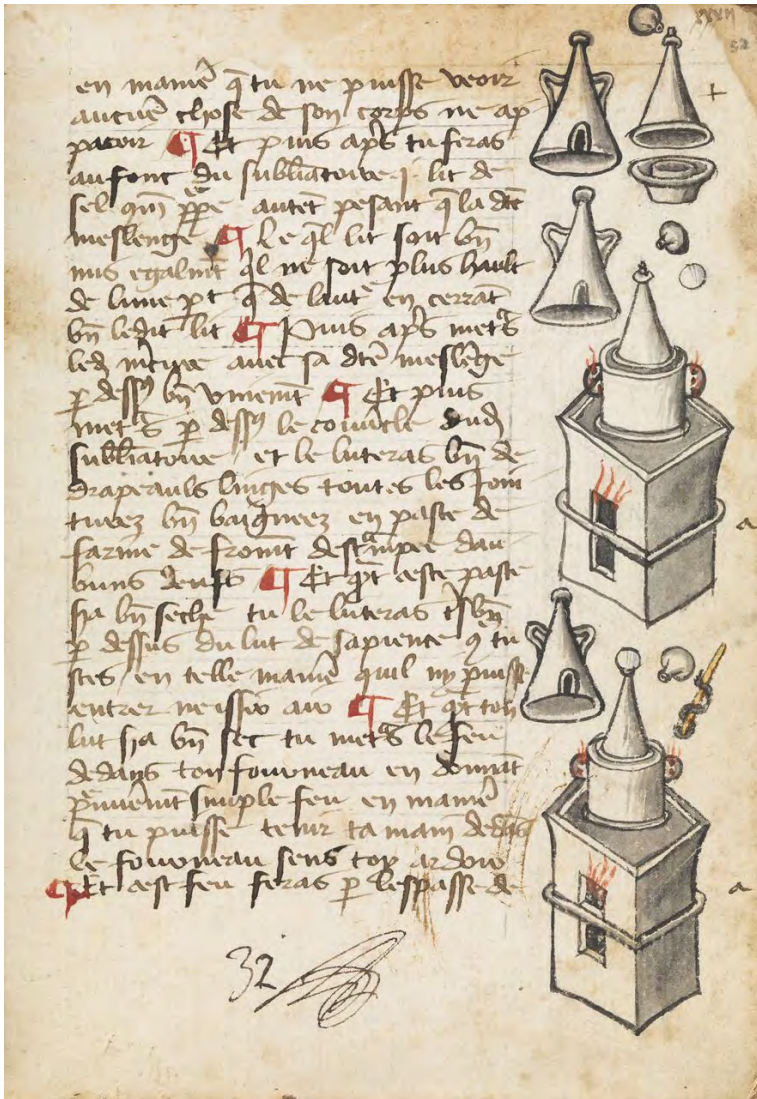 xxxii
32
en maniē q̄ tu ne puisse veoir
aucūe chose de son corps ne ap
paroir ¶ Et puis apṣ tu feras
au font du sublīatoire .i. lit de
sel qm̄ p̄p̄e autēt pesant q̄ la dte
meslenge ¶ Le q̄l lit soit bn̄
mis egalmt̄ q̄l ne soit plus hault
de lune pt q̄ de laut̄ en cerrāt
bn̄ ledit lit ¶ Puis apṣ metṛs
led m̄cure auec sa dtē meslēge
p dessꝯ bn̄ vniemt̄ ¶ Et puis
metṛs p dessꝯ le couūcle dud
sublīatoire et le luteras bn̄ de
drapeauls linges toutes les ioin
turez bn̄ baigneez en paste de
farine de fromt̄ destāmpee dau
buns deufs ¶ Et q̄t ceste paste
ha bn̄ seche tu le luteras tsbn̄
p dessus du lut de sapience ꝯ tu
stes en telle maniē quil ny puisse
entrer ne issir air ¶ Et q̄t ton
lut ha bn̄ sec tu metṛs le feu
dedans ton fourneau en donnāt
p̄mierēmt simple feu en maniē
q̄ tu puisse tenir ta main dedās
le fourneau sens trop ardoir
¶ Et cest feu feras p lespasse de
a
a
32